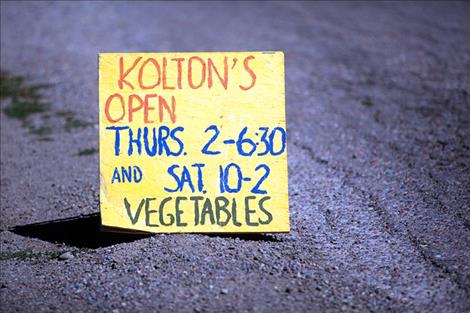 KOLTON'S
OPEN
THURS. 2-6:30
AND SAT. 10-2
VEGETABLES